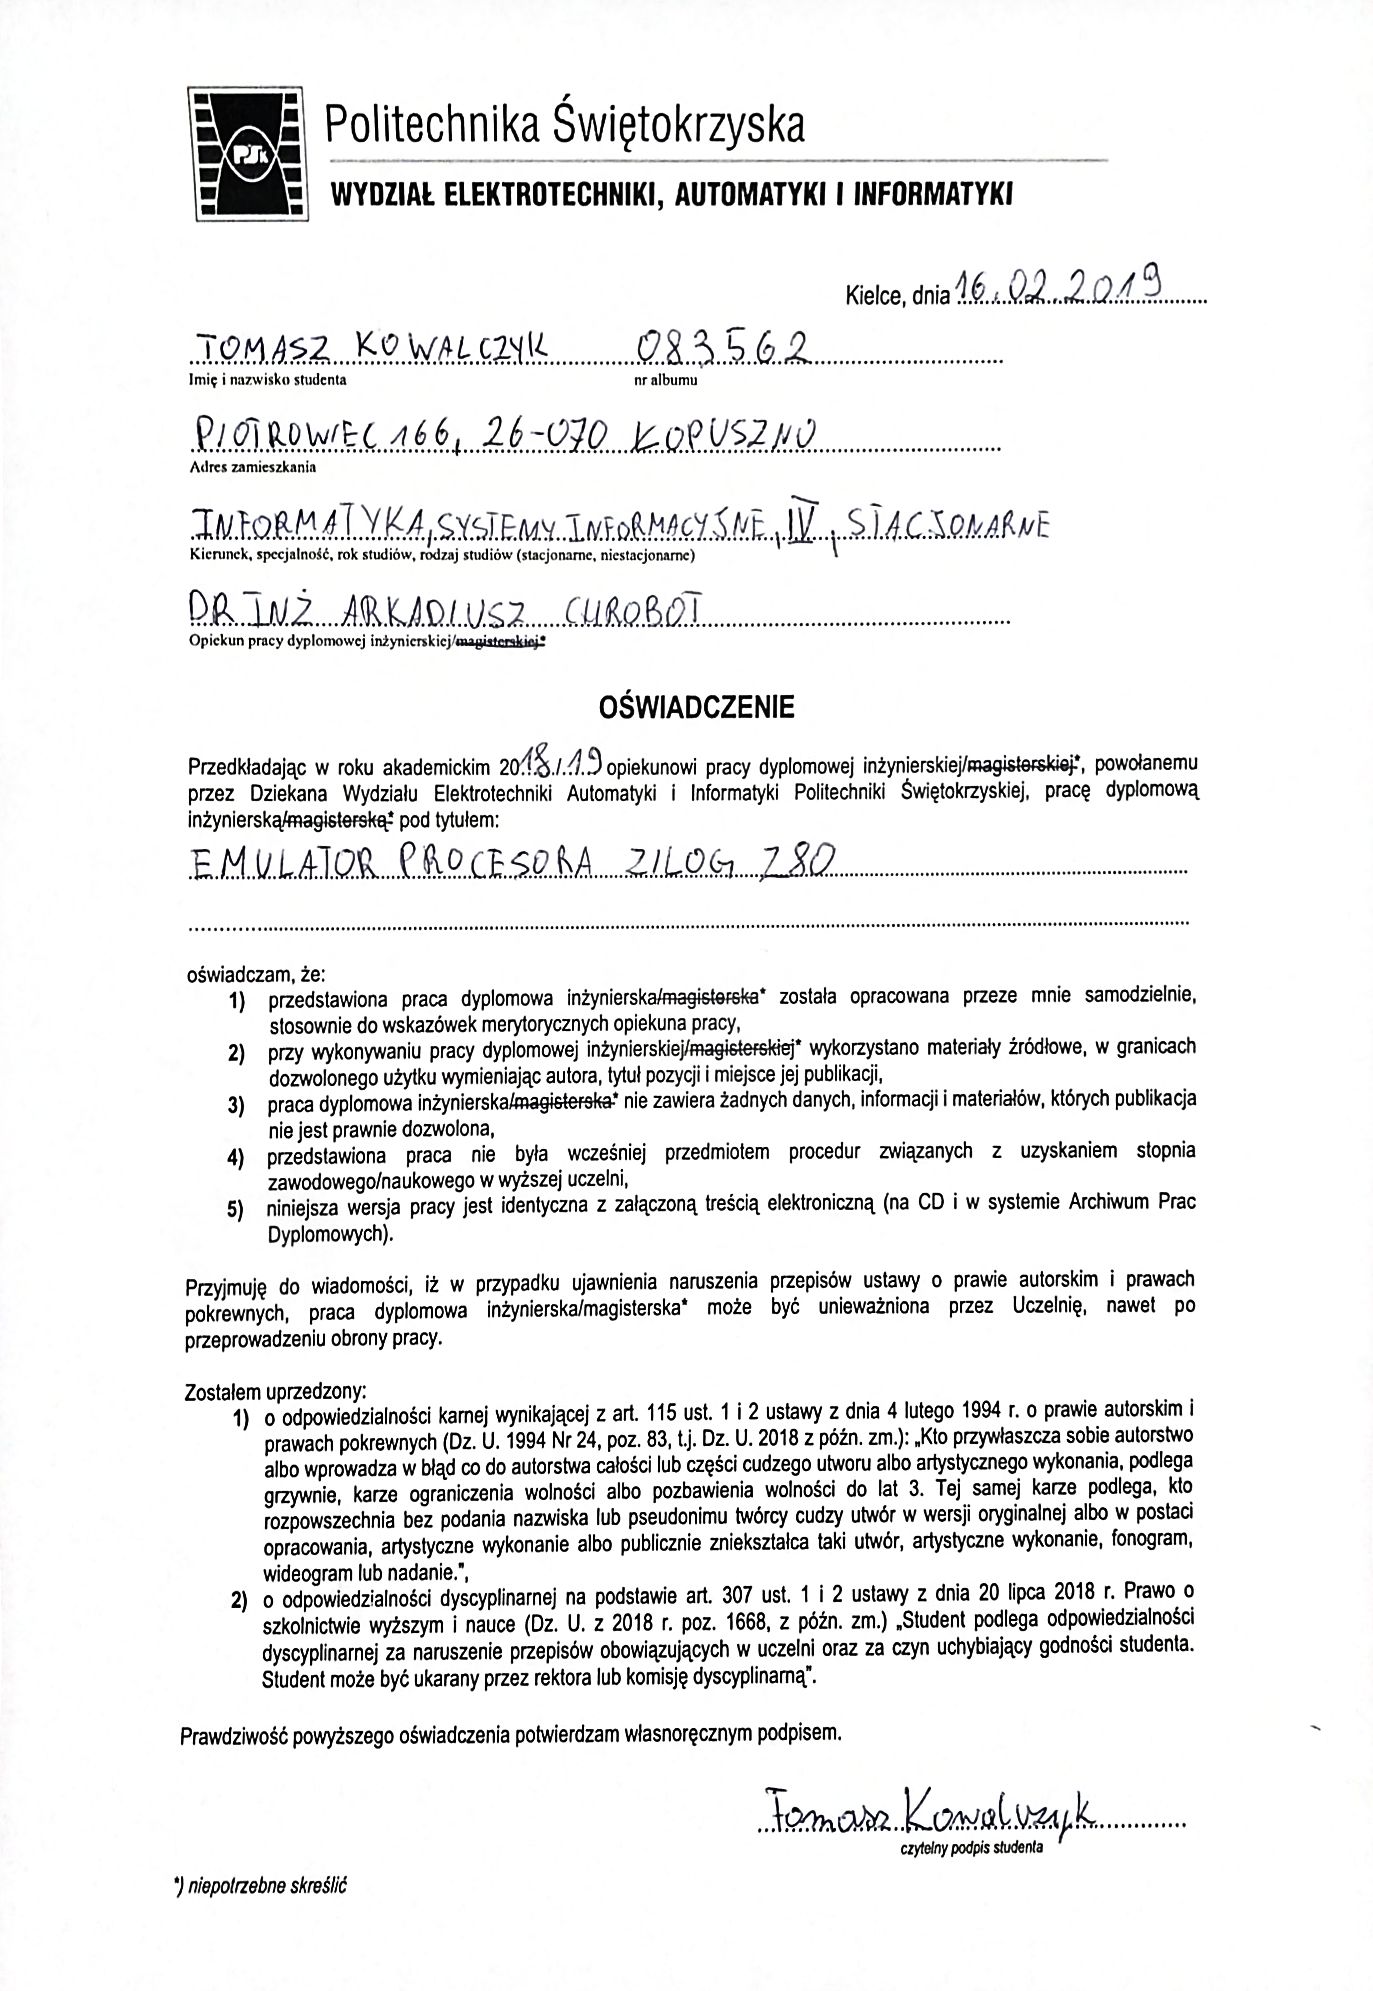 PŚk
Politechnika Świętokrzyska
WYDZIAŁ ELEKTROTECHNIKI, AUTOMATYKI I INFORMATYKI
Kielce, dnia 16.02.2019
TOMASZ KOWALCZYK 083562
Imię i nazwisko studenta nr albumu
PIOTROWIEC 166, 26-070 ŁOPUSZNO
Adres zamieszkania
INFORMATYKA, SYSTEMY INFORMACYJNE, IV, STACJONARNE
Kierunek, specjalność, rok studiów, rodzaj studiów (stacjonarne, niestacjonarne)
DR INŻ ARKADIUSZ CHROBOT
Opiekun pracy dyplomowej inżynierskiej/magisterskiej*
OŚWIADCZENIE
Przedkładając w roku akademickim 2018./.19 opiekunowi pracy dyplomowej inżynierskiej/magisterskiej*, powołanemu
przez Dziekana Wydziału Elektrotechniki Automatyki i Informatyki Politechniki Świętokrzyskiej, pracę dyplomową
inżynierską/magisterską* pod tytułem:
EMULATOR PROCESORA ZILOG Z80
oświadczam, że:
1) przedstawiona praca dyplomowa inżynierska/magisterska* została opracowana przeze mnie samodzielnie,
stosownie do wskazówek merytorycznych opiekuna pracy,
2) przy wykonywaniu pracy dyplomowej inżynierskiej/magisterskiej* wykorzystano materiały źródłowe, w granicach
dozwolonego użytku wymieniając autora, tytuł pozycji i miejsce jej publikacji,
3) praca dyplomowa inżynierska/magisterska* nie zawiera żadnych danych, informacji i materiałów, których publikacja
nie jest prawnie dozwolona,
4) przedstawiona praca nie była wcześniej przedmiotem procedur związanych z uzyskaniem stopnia
zawodowego/naukowego w wyższej uczelni,
5) niniejsza wersja pracy jest identyczna z załączoną treścią elektroniczną (na CD i w systemie Archiwum Prac
Dyplomowych).
Przyjmuję do wiadomości, iż w przypadku ujawnienia naruszenia przepisów ustawy o prawie autorskim i prawach
pokrewnych, praca dyplomowa inżynierska/magisterska* może być unieważniona przez Uczelnię, nawet po
przeprowadzeniu obrony pracy.
Zostałem uprzedzony:
1) o odpowiedzialności karnej wynikającej z art. 115 ust. 1 i 2 ustawy z dnia 4 lutego 1994 r. o prawie autorskim i
prawach pokrewnych (Dz. U. 1994 Nr 24, poz. 83, t.j. Dz. U. 2018 z późn. zm.): „Kto przywłaszcza sobie autorstwo
albo wprowadza w błąd co do autorstwa całości lub części cudzego utworu albo artystycznego wykonania, podlega
grzywnie, karze ograniczenia wolności albo pozbawienia wolności do lat 3. Tej samej karze podlega, kto
rozpowszechnia bez podania nazwiska lub pseudonimu twórcy cudzy utwór w wersji oryginalnej albo w postaci
opracowania, artystyczne wykonanie albo publicznie zniekształca taki utwór, artystyczne wykonanie, fonogram,
wideogram lub nadanie.",
2) o odpowiedzialności dyscyplinarnej na podstawie art. 307 ust. 1 i 2 ustawy z dnia 20 lipca 2018 r. Prawo o
szkolnictwie wyższym i nauce (Dz. U. z 2018 r. poz. 1668, z późn. zm.) „Student podlega odpowiedzialności
dyscyplinarnej za naruszenie przepisów obowiązujących w uczelni oraz za czyn uchybiający godności studenta.
Student może być ukarany przez rektora lub komisję dyscyplinarną".
Prawdziwość powyższego oświadczenia potwierdzam własnoręcznym podpisem.
Tomasz Kowalczyk
czytelny podpis studenta
*) niepotrzebne skreślić